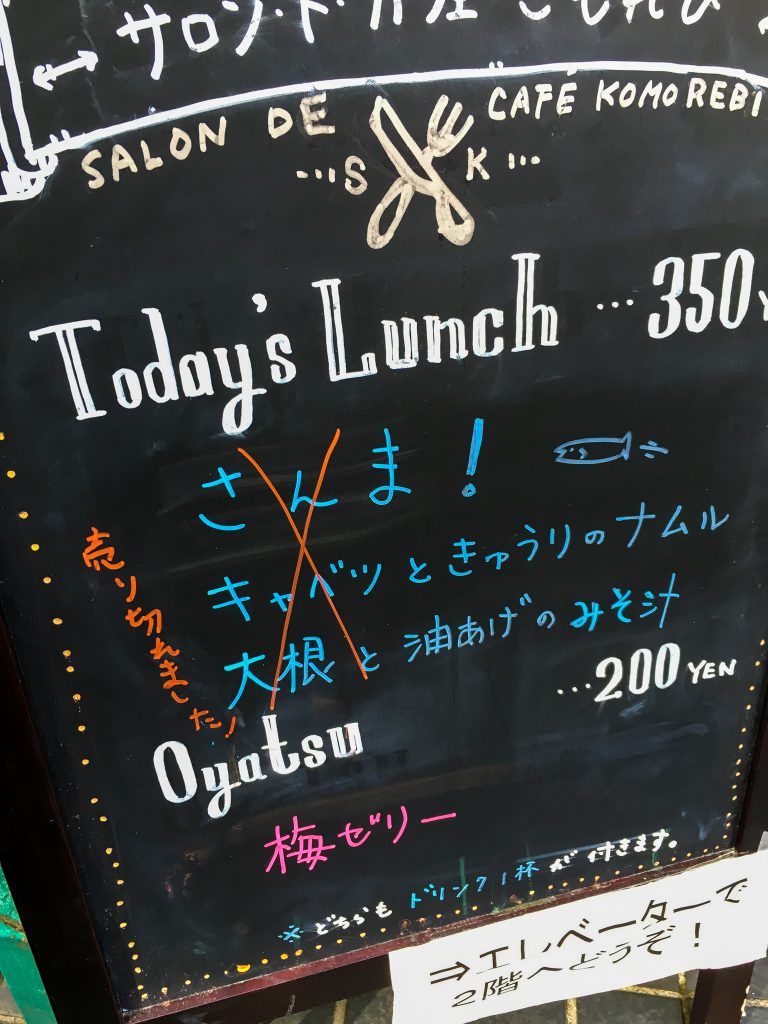 サロン・ド・カフェ こもれび
SALON DE CAFÉ KOMOREBI
...S K...
Today's Lunch ...350
さんま!
キャベツときゅうりのナムル
大根と油あげのみそ汁
売り切れました!
Oyatsu ...200 YEN
梅ゼリー
※どちらもドリンク1杯が付きます。
⇒エレベーターで
2階へどうぞ!